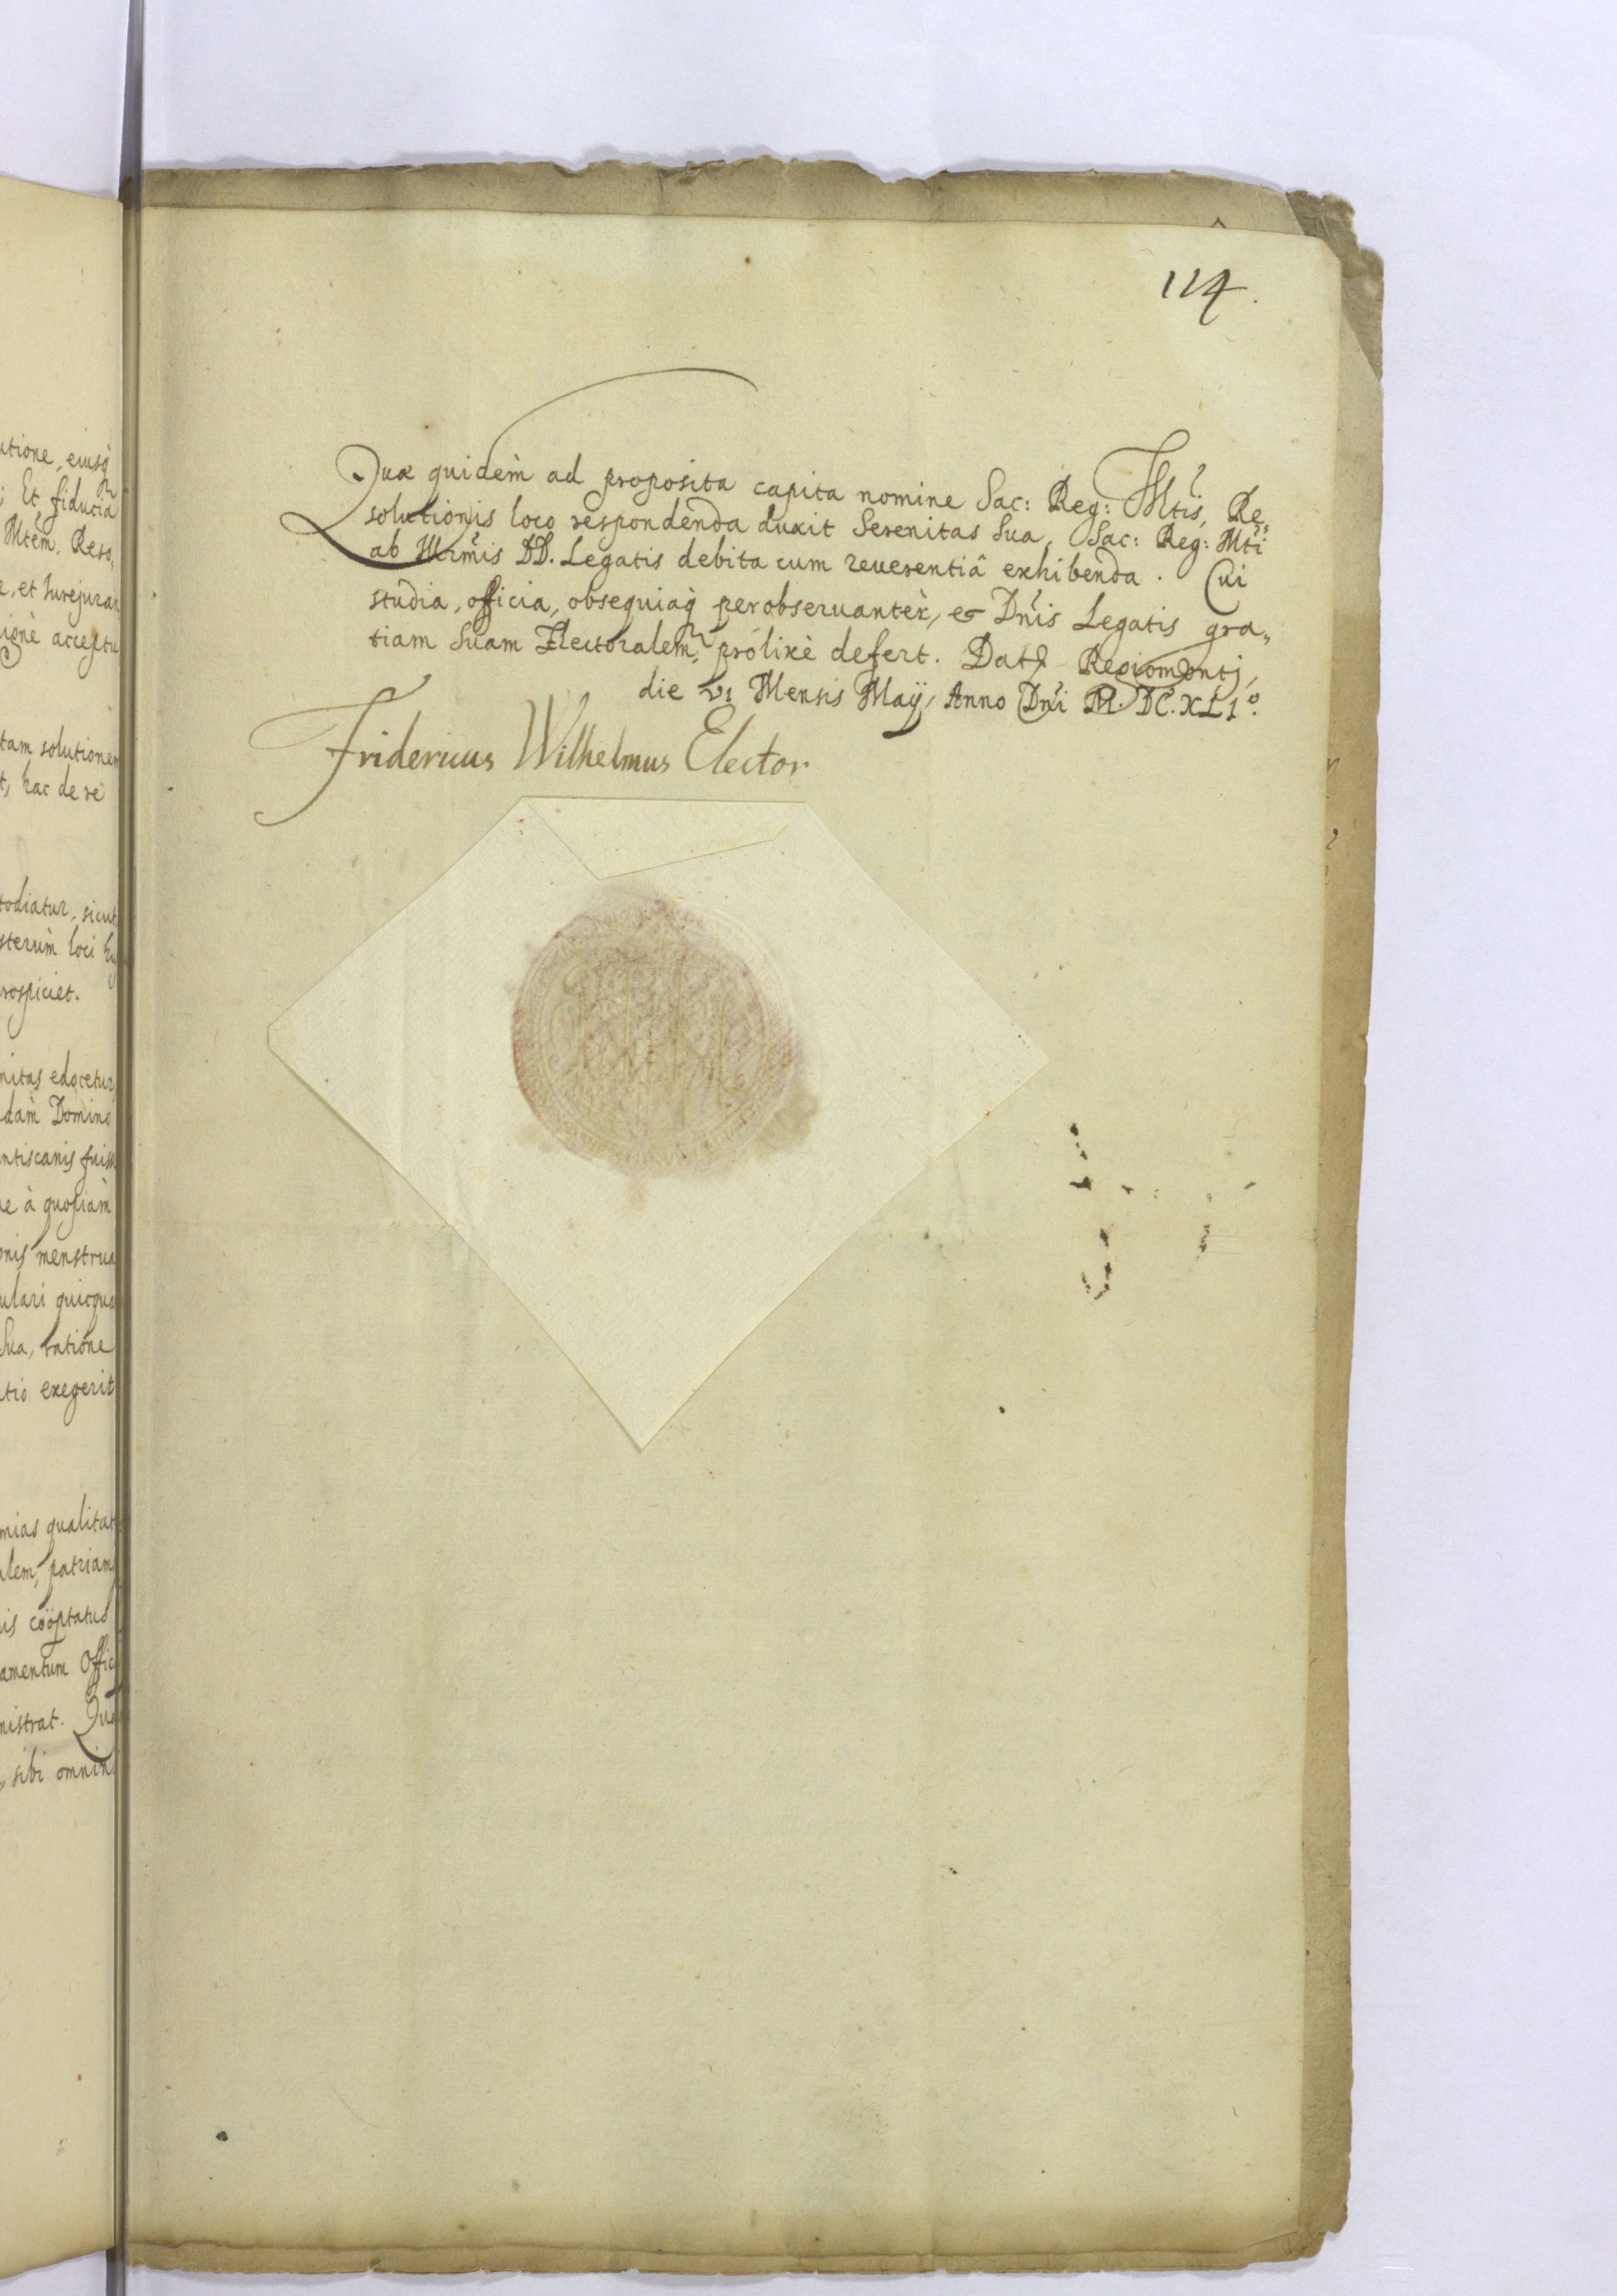 utione, eiusq̀
; Et fiducia
Mtem. Reso,
, et Jurejuran
ignè acceptu
tam solutionem
t, hac de re
todiatur, sicut
sterùm loci hu
rospiciet.
nitas edocetur
dàm Domino
ntiscanis fuiss
e à quopiàm
onis menstrua
ulari quicqua
Sua, ratione
tio exegerit
mias qualitat
alem, patriam
is coöptatus
amentum Offic
nistrat. Qua
, sibi omnin
114.
Quæ quidèm ad proposita capita nomine Sac: Reg: Mtis, Re=
solutionis loco respondenda duxit Serenitas Sua, Sac: Reg: Mti
ab Illrmis DD. Legatis debita cum reuerentiâ exhibenda. Cui
studia, officia, obsequiaq̀ perobseruantèr, et Dnis Legatis gra,,
tiam Suam Electoralem, prólixè defert. Dat Regiomontj,
die VI Mensis Maÿ, Anno Dni M. DC. XL1º.
Fridericus Wilhelmus Elector